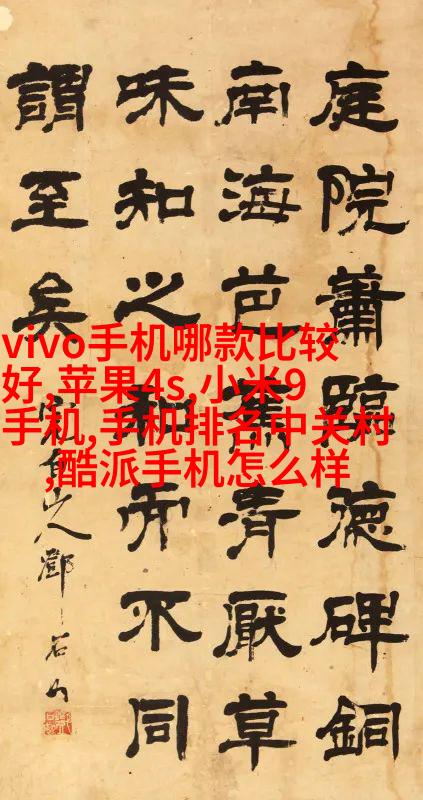 vivo手机哪款比较
好,苹果4s,小米9
手机,手机排名中关村
,酷派手机怎么样
庭院蕭臨德碑銅
南海芭蕉清厭草
味知之和而不同
謂至矣
山人鄧石如